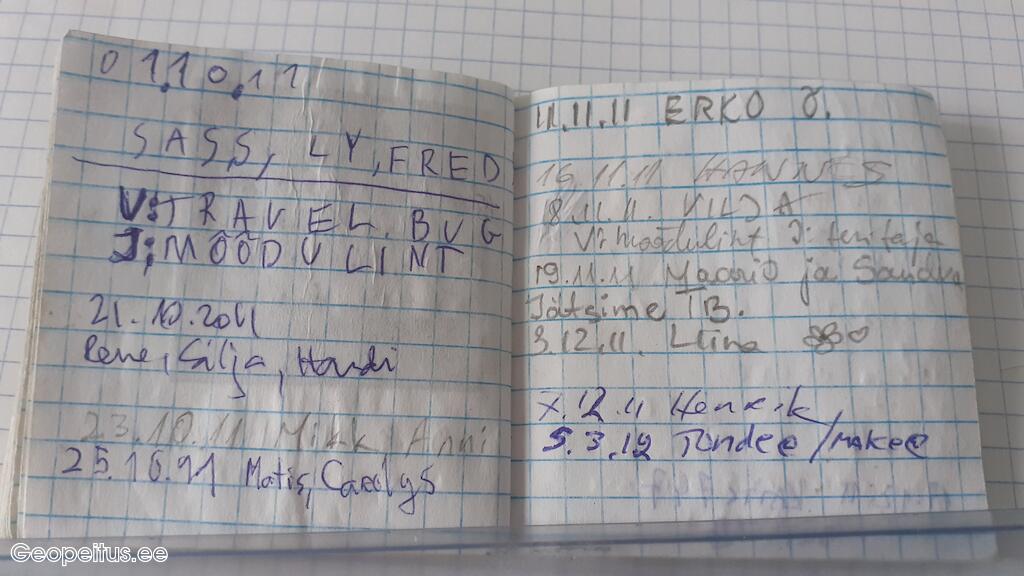 01.10.11
SASS, LY, FRED
V: TRAVEL BUG
J: MÕÕDULINT
21.10.2011
Rene, Silja, Handi
23.10.11 Mikk, Anni
25.10.11 Matis, Carolys
11.11.11 ERKO Õ.
16.11.11 HANNES
18.11.11. VILJA
V: mõõdulint J: teritaja
19.11.11 Maario ja Sandra
Jätsime TB.
3.12.11. Liina
X.12.11 Henrik,
5.3.12 Tondee/makee
Geopeitus.ee